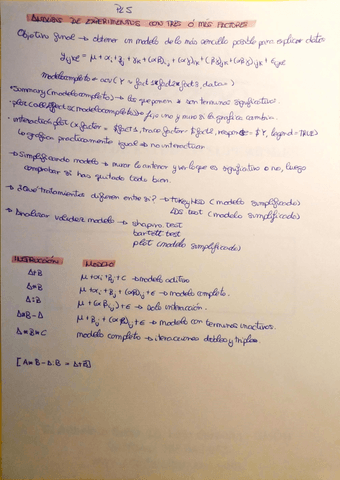 PL5
ANÁLISIS DE EXPERIMENTOS CON TRES Ó MÁS FACTORES
Objetivo final → obtener un modelo de lo más sencillo posible para explicar datos
modelo completo = aov(Y ~ fact1*fact2*fact3, data= )
· Summary(modelo completo) → los que ponen * son términos significativos.
· plot(allEffects(modelo completo)) → fijo uno y miro si la gráfica cambia.
· interaction.plot(x.factor = $fact1, trace.factor = $fact2, response = $Y, legend=TRUE)
↳ gráfica prácticamente igual → no interactúan
→ Simplificando modelo → mirar lo anterior y ver lo que es significativo o no, luego
comprobar si has quitado todo bien.
→ ¿Qué tratamientos difieren entre sí? → TukeyHSD (modelo simplificado)
LSD test (modelo simplificado)
→ Analizar validez modelo → shapiro.test
bartlett.test
plot (modelo simplificado)
INSTRUCCIÓN MODELO
A+B → modelo aditivo
A*B → modelo completo.
A:B → solo interacción.
A*B-A → modelo con términos inactivos.
A*B*C modelo completo → iteracciones dobles y triples.
[A*B-A:B = A+B]